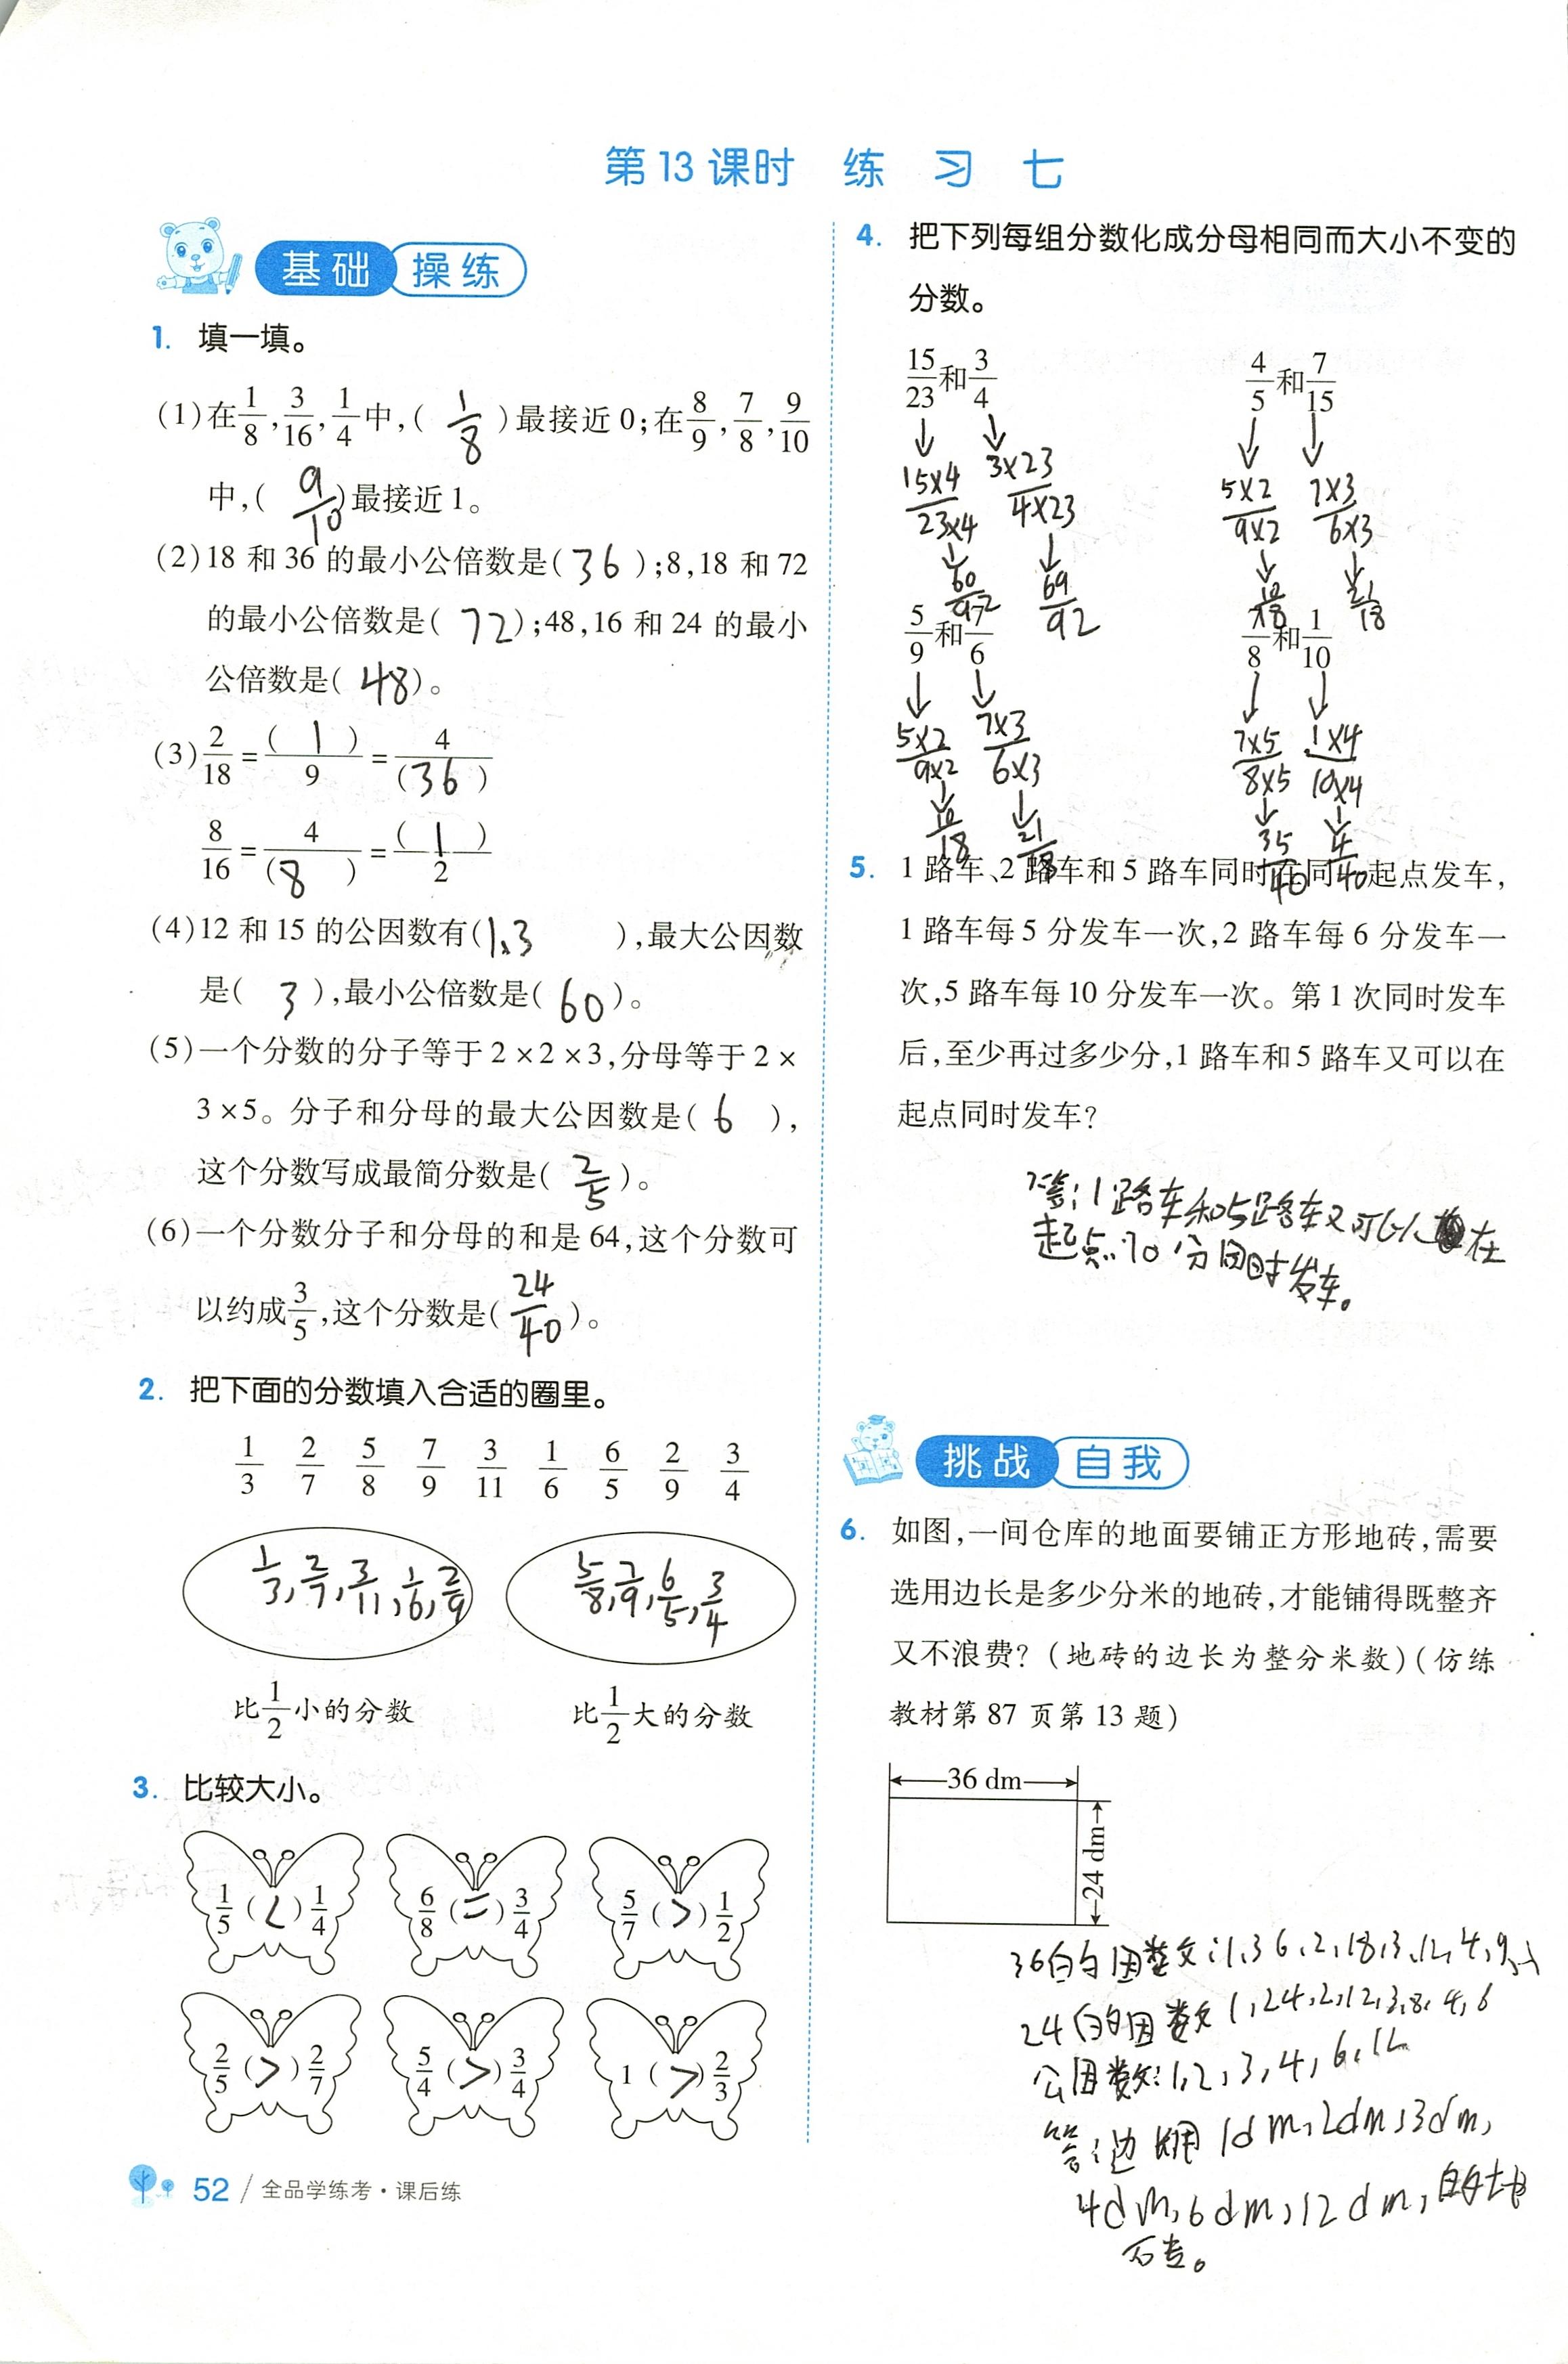 第13课时 练 习 七
基础 操练
1. 填一填。
(1)在1/8,3/16,1/4中,( 1/8 )最接近0;在8/9,7/8,9/10
中,( 9/10 )最接近1。
(2)18和36的最小公倍数是( 36 );8,18和72
的最小公倍数是( 72 );48,16和24的最小
公倍数是( 48 )。
(3)2/18=( 1 )/9=4/( 36 )
8/16=4/( 8 )=( 1 )/2
(4)12和15的公因数有( 1、3 ),最大公因数
是( 3 ),最小公倍数是( 60 )。
(5)一个分数的分子等于2×2×3,分母等于2×
3×5。分子和分母的最大公因数是( 6 ),
这个分数写成最简分数是( 2/5 )。
(6)一个分数分子和分母的和是64,这个分数可
以约成3/5,这个分数是( 24/40 )。
2. 把下面的分数填入合适的圈里。
1/3 2/7 5/8 7/9 3/11 1/6 6/5 2/9 3/4
1/3,2/7,3/11,1/6,2/9 5/8,7/9,6/5,3/4
比1/2小的分数 比1/2大的分数
3. 比较大小。
1/5(<)1/4 6/8(=)3/4 5/7(>)1/2
2/5(>)2/7 5/4(>)3/4 1(>)2/3
52/全品学练考·课后练
4. 把下列每组分数化成分母相同而大小不变的
分数。
15/23和3/4 4/5和7/15
↓ ↓ ↓ ↓
15×4/23×4 3×23/4×23 5×2/9×2 7×3/6×3
↓ ↓ ↓ ↓
60/92 69/92 10/18 21/18
5/9和7/6 7/8和1/10
↓ ↓ ↓ ↓
5×2/9×2 7×3/6×3 7×5/8×5 1×4/10×4
↓ ↓ ↓ ↓
10/18 21/18 35/40 4/40
5. 1路车、2路车和5路车同时在同一起点发车,
1路车每5分发车一次,2路车每6分发车一
次,5路车每10分发车一次。第1次同时发车
后,至少再过多少分,1路车和5路车又可以在
起点同时发车?
答:1路车和5路车又可以在
起点10分同时发车。
挑战 自我
6. 如图,一间仓库的地面要铺正方形地砖,需要
选用边长是多少分米的地砖,才能铺得既整齐
又不浪费?(地砖的边长为整分米数)(仿练
教材第87页第13题)
36 dm
24 dm
36的因数:1,36,2,18,3,12,4,9,
24的因数1,24,2,12,3,8,4,6
公因数:1,2,3,4,6,12
答:边长用1dm,2dm,3dm,
4dm,6dm,12dm,的地
砖。